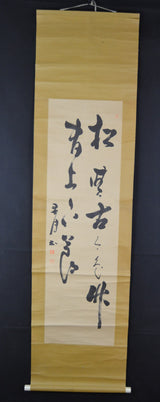 松無古今色竹
有上下節